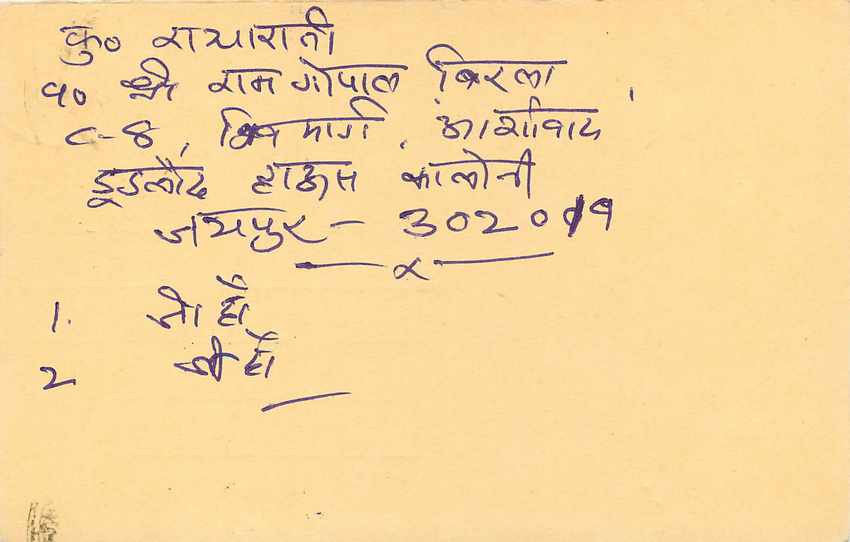 कु० राधारानी
प० श्री राम गोपाल बिरला,
C-8, शिव मार्ग, आर्शीवाद
डूडलोद हाऊस कालोनी
जयपुर - 302019
1. जी हाँ
2 जी हाँ